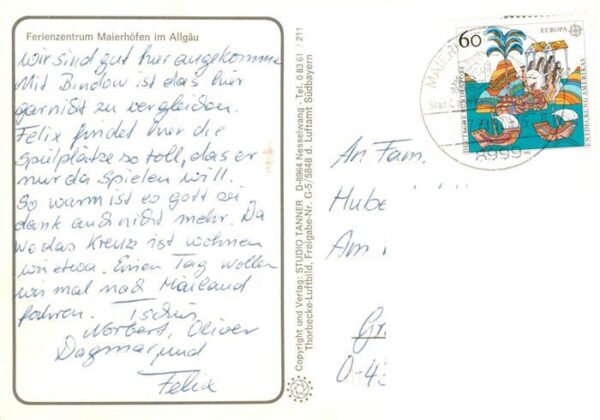 Ferienzentrum Maierhöfen im Allgäu
wir sind gut hier angekomme
Mit Bindow ist das hier
garnißt zu vergleichen.
Felix findet hier die
Spielplätze so toll, das er
nur da Spielen will.
So warm ist es gott sei
dank auch nicht mehr. Da
wo das Kreuz ist wohnen
wir etwa. Einen Tag wollen
wir mal nach Mailand
fahren. Tschüs
Norbert, Oliver
Dagmar, und
Felix
Copyright und Verlag: STUDIO TANNER D-8964 Nesselwang - Tel. 0 83 61 / 211
Thorbecke-Luftbild, Freigabe-Nr. G-5/5848 d. Luftamt Südbayern
60
EUROPA
DEUTSCHE BUNDESPOST
ENTDECKUNG AMERIKAS
MAIER
8999
An Fam.
Hube
Am
Gr
O-43